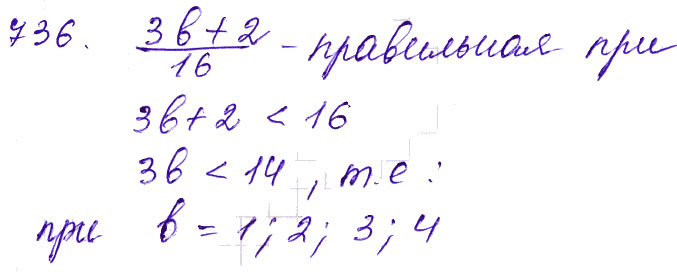 736. (3в+2)/16 – правильная при
3в+2 < 16
3в < 14, т.е:
при в = 1; 2; 3; 4